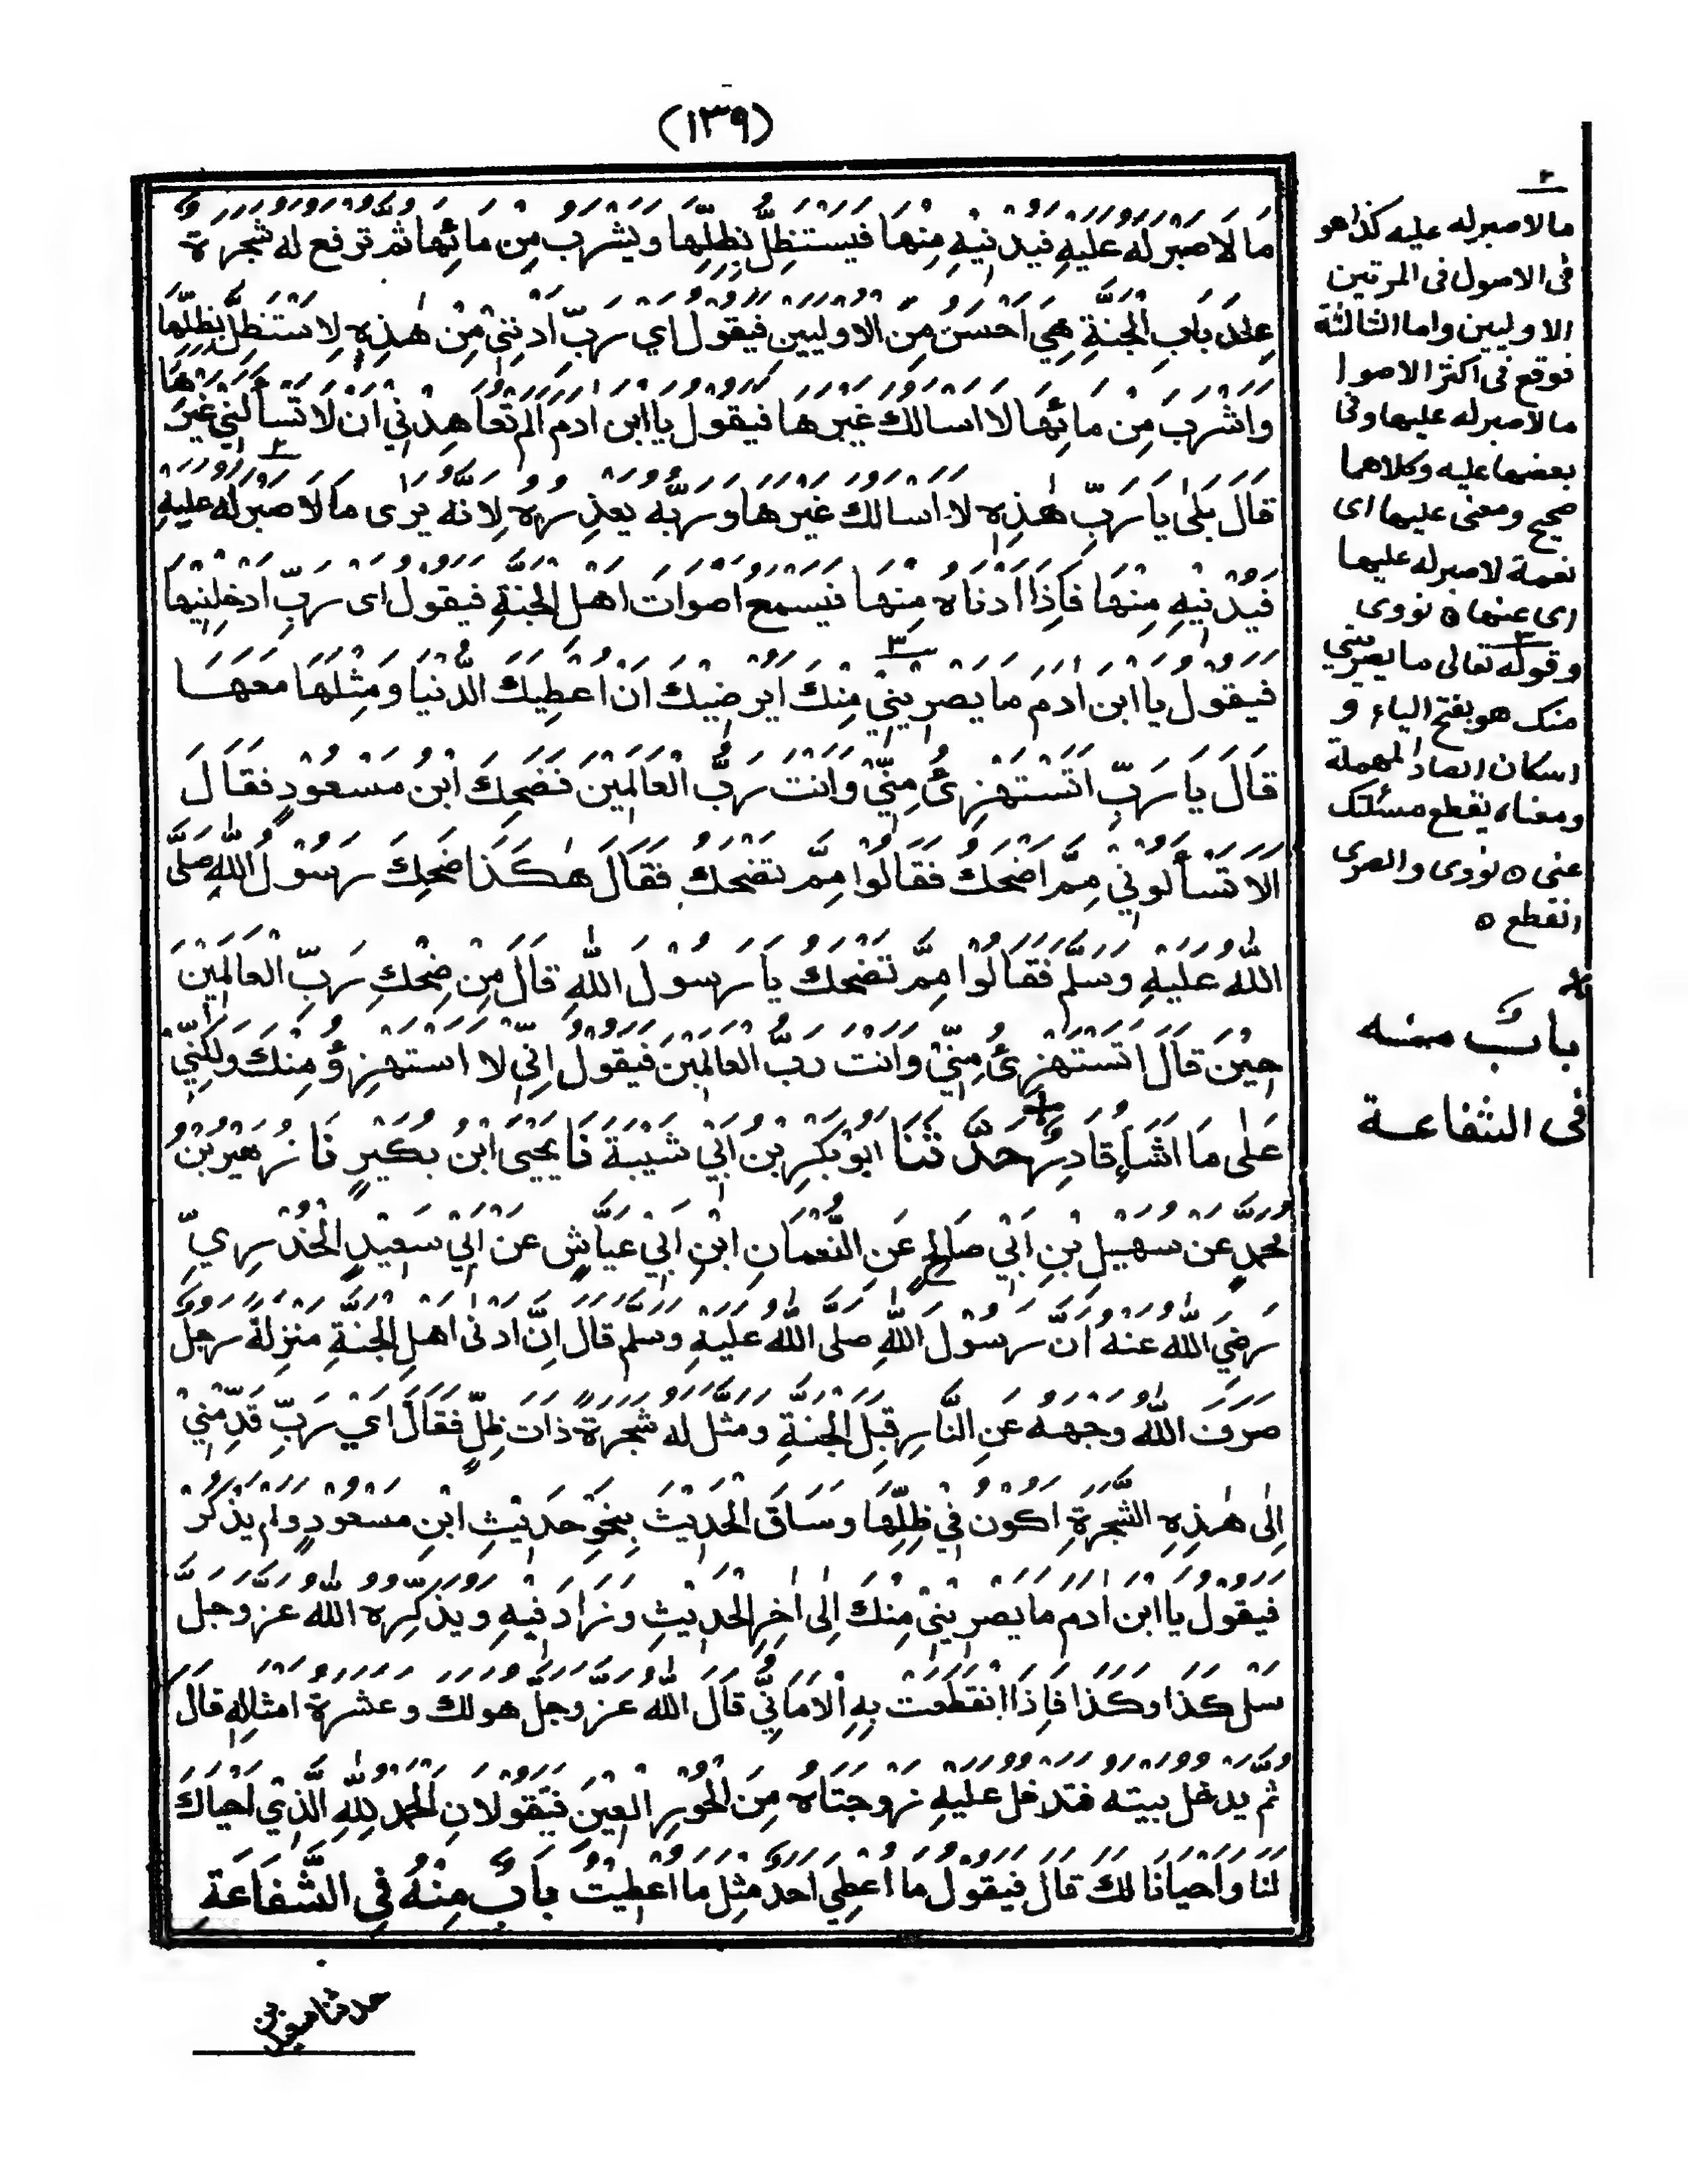 (١٣٩)
مَا لَا صَبْرَ لَهُ عَلَيْهِ فَيُدْنِيْهِ مِنْهَا فَيَسْتَظِلُّ بِظِلِّهَا وَيَشْرَبُ مِنْ مَائِهَا ثُمَّ تُرْفَعُ لَهُ شَجَرَةٌ
عِنْدَ بَابِ الْجَنَّةِ هِيَ اَحْسَنُ مِنَ الْاُوْلَيَيْنِ فَيَقُوْلُ اَيْ رَبِّ اَدْنِنِيْ مِنْ هٰذِهِ لِاَسْتَظِلَّ بِظِلِّهَا
وَاَشْرَبَ مِنْ مَائِهَا لَا اَسْاَلُكَ غَيْرَهَا فَيَقُوْلُ يَا ابْنَ اٰدَمَ اَلَمْ تُعَاهِدْنِيْ اَنْ لَا تَسْأَلَنِيْ غَيْرَهَا
قَالَ بَلٰى يَا رَبِّ هٰذِهِ لَا اَسْاَلُكَ غَيْرَهَا وَرَبُّهُ يَعْذِرُهُ لِاَنَّهُ يَرٰى مَا لَا صَبْرَ لَهُ عَلَيْهِ
فَيُدْنِيْهِ مِنْهَا فَاِذَا اَدْنَاهُ مِنْهَا فَيَسْمَعُ اَصْوَاتَ اَهْلِ الْجَنَّةِ فَيَقُوْلُ اَىْ رَبِّ اَدْخِلْنِيْهَا
فَيَقُوْلُ يَا ابْنَ اٰدَمَ مَا يَصْرِيْنِيْ مِنْكَ اَيُرْضِيْكَ اَنْ اُعْطِيَكَ الدُّنْيَا وَمِثْلَهَا مَعَهَا
قَالَ يَا رَبِّ اَتَسْتَهْزِئُ مِنِّيْ وَاَنْتَ رَبُّ الْعَالَمِيْنَ فَضَحِكَ ابْنُ مَسْعُوْدٍ فَقَالَ
اَلَا تَسْأَلُوْنِيْ مِمَّ اَضْحَكُ فَقَالُوْا مِمَّ تَضْحَكُ فَقَالَ هٰكَذَا ضَحِكَ رَسُوْلُ اللّٰهِ صَلَّى
اللّٰهُ عَلَيْهِ وَسَلَّمَ فَقَالُوْا مِمَّ تَضْحَكُ يَا رَسُوْلَ اللّٰهِ قَالَ مِنْ ضِحْكِ رَبِّ الْعَالَمِيْنَ
حِيْنَ قَالَ اَتَسْتَهْزِئُ مِنِّيْ وَاَنْتَ رَبُّ الْعَالَمِيْنَ فَيَقُوْلُ اِنِّيْ لَا اَسْتَهْزِؤُ مِنْكَ وَلٰكِنِّيْ
عَلٰى مَا اَشَاءُ قَادِرٌ حَدَّثَنَا اَبُوْ بَكْرِ بْنُ اَبِيْ شَيْبَةَ نَا يَحْيَى ابْنُ بُكَيْرٍ نَا زُهَيْرُ بْنُ
مُحَمَّدٍ عَنْ سُهَيْلِ بْنِ اَبِيْ صَالِحٍ عَنِ النُّعْمَانِ ابْنِ اَبِيْ عَيَّاشٍ عَنْ اَبِيْ سَعِيْدٍ الْخُدْرِيِّ
رَضِيَ اللّٰهُ عَنْهُ اَنَّ رَسُوْلَ اللّٰهِ صَلَّى اللّٰهُ عَلَيْهِ وَسَلَّمَ قَالَ اِنَّ اَدْنٰى اَهْلِ الْجَنَّةِ مَنْزِلَةً رَجُلٌ
صَرَفَ اللّٰهُ وَجْهَهُ عَنِ النَّارِ قِبَلَ الْجَنَّةِ وَمَثَّلَ لَهُ شَجَرَةً ذَاتَ ظِلٍّ فَقَالَ اَيْ رَبِّ قَدِّمْنِيْ
اِلٰى هٰذِهِ الشَّجَرَةِ اَكُوْنُ فِيْ ظِلِّهَا وَسَاقَ الْحَدِيْثَ بِنَحْوِ حَدِيْثِ ابْنِ مَسْعُوْدٍ وَلَمْ يَذْكُرْ
فَيَقُوْلُ يَا ابْنَ اٰدَمَ مَا يَصْرِيْنِيْ مِنْكَ اِلٰى اٰخِرِ الْحَدِيْثِ وَزَادَ فِيْهِ وَيُذَكِّرُهُ اللّٰهُ عَزَّ وَجَلَّ
سَلْ كَذَا وَكَذَا فَاِذَا انْقَطَعَتْ بِهِ الْاَمَانِيُّ قَالَ اللّٰهُ عَزَّ وَجَلَّ هُوَ لَكَ وَعَشَرَةُ اَمْثَالِهِ قَالَ
ثُمَّ يَدْخُلُ بَيْتَهُ فَتَدْخُلُ عَلَيْهِ زَوْجَتَاهُ مِنَ الْحُوْرِ الْعِيْنِ فَيَقُوْلَانِ اَلْحَمْدُ لِلّٰهِ الَّذِيْ اَحْيَاكَ
لَنَا وَاَحْيَانَا لَكَ قَالَ فَيَقُوْلُ مَا اُعْطِيَ اَحَدٌ مِثْلَ مَا اُعْطِيْتُ بَابٌ مِنْهُ فِي الشَّفَاعَةِ
٢
ما لا صبر له عليه كذا هو
فى الاصول فى المرتين
الاوليين واما الثالثة
فوقع فى اكثر الاصول
ما لا صبر له عليها وفى
بعضها عليه وكلاهما
صحيح ومعنى عليها اى
نعمة لا صبر له عليها
اى عنها ٥ نووى
٣
وقوله تعالى ما يصريني
منك هو بفتح الياء و
اسكان الصاد المهملة
ومعناه يقطع مسئلتك
عنى ٥ نووى والصرى
القطع ٥
بابٌ منه
فى الشفاعة
حدثنا سعيد بن